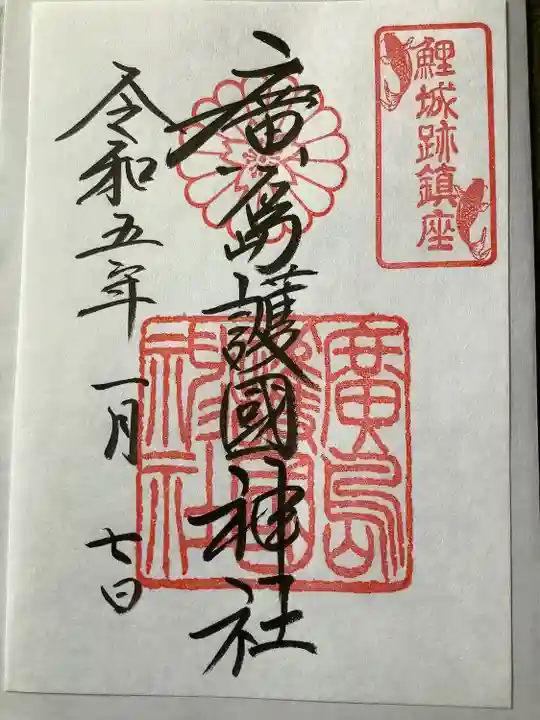 鯉城跡鎮座
廣島護國神社
廣島護國神社
令和五年一月七日